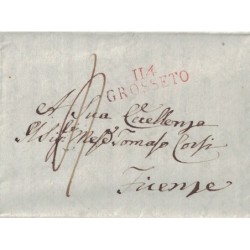 114
GROSSETO
A Sua Eccellenza
Il Sig.r Tomaso Corsi
Firenze